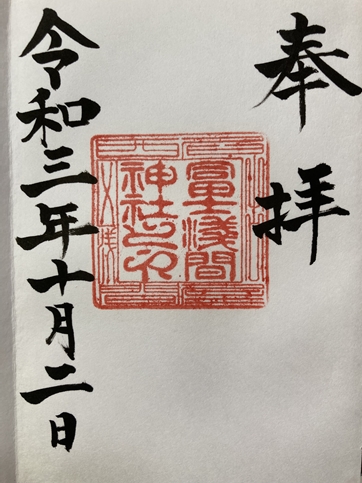 奉拝
冨士浅間
神社之印
令和三年十月二日